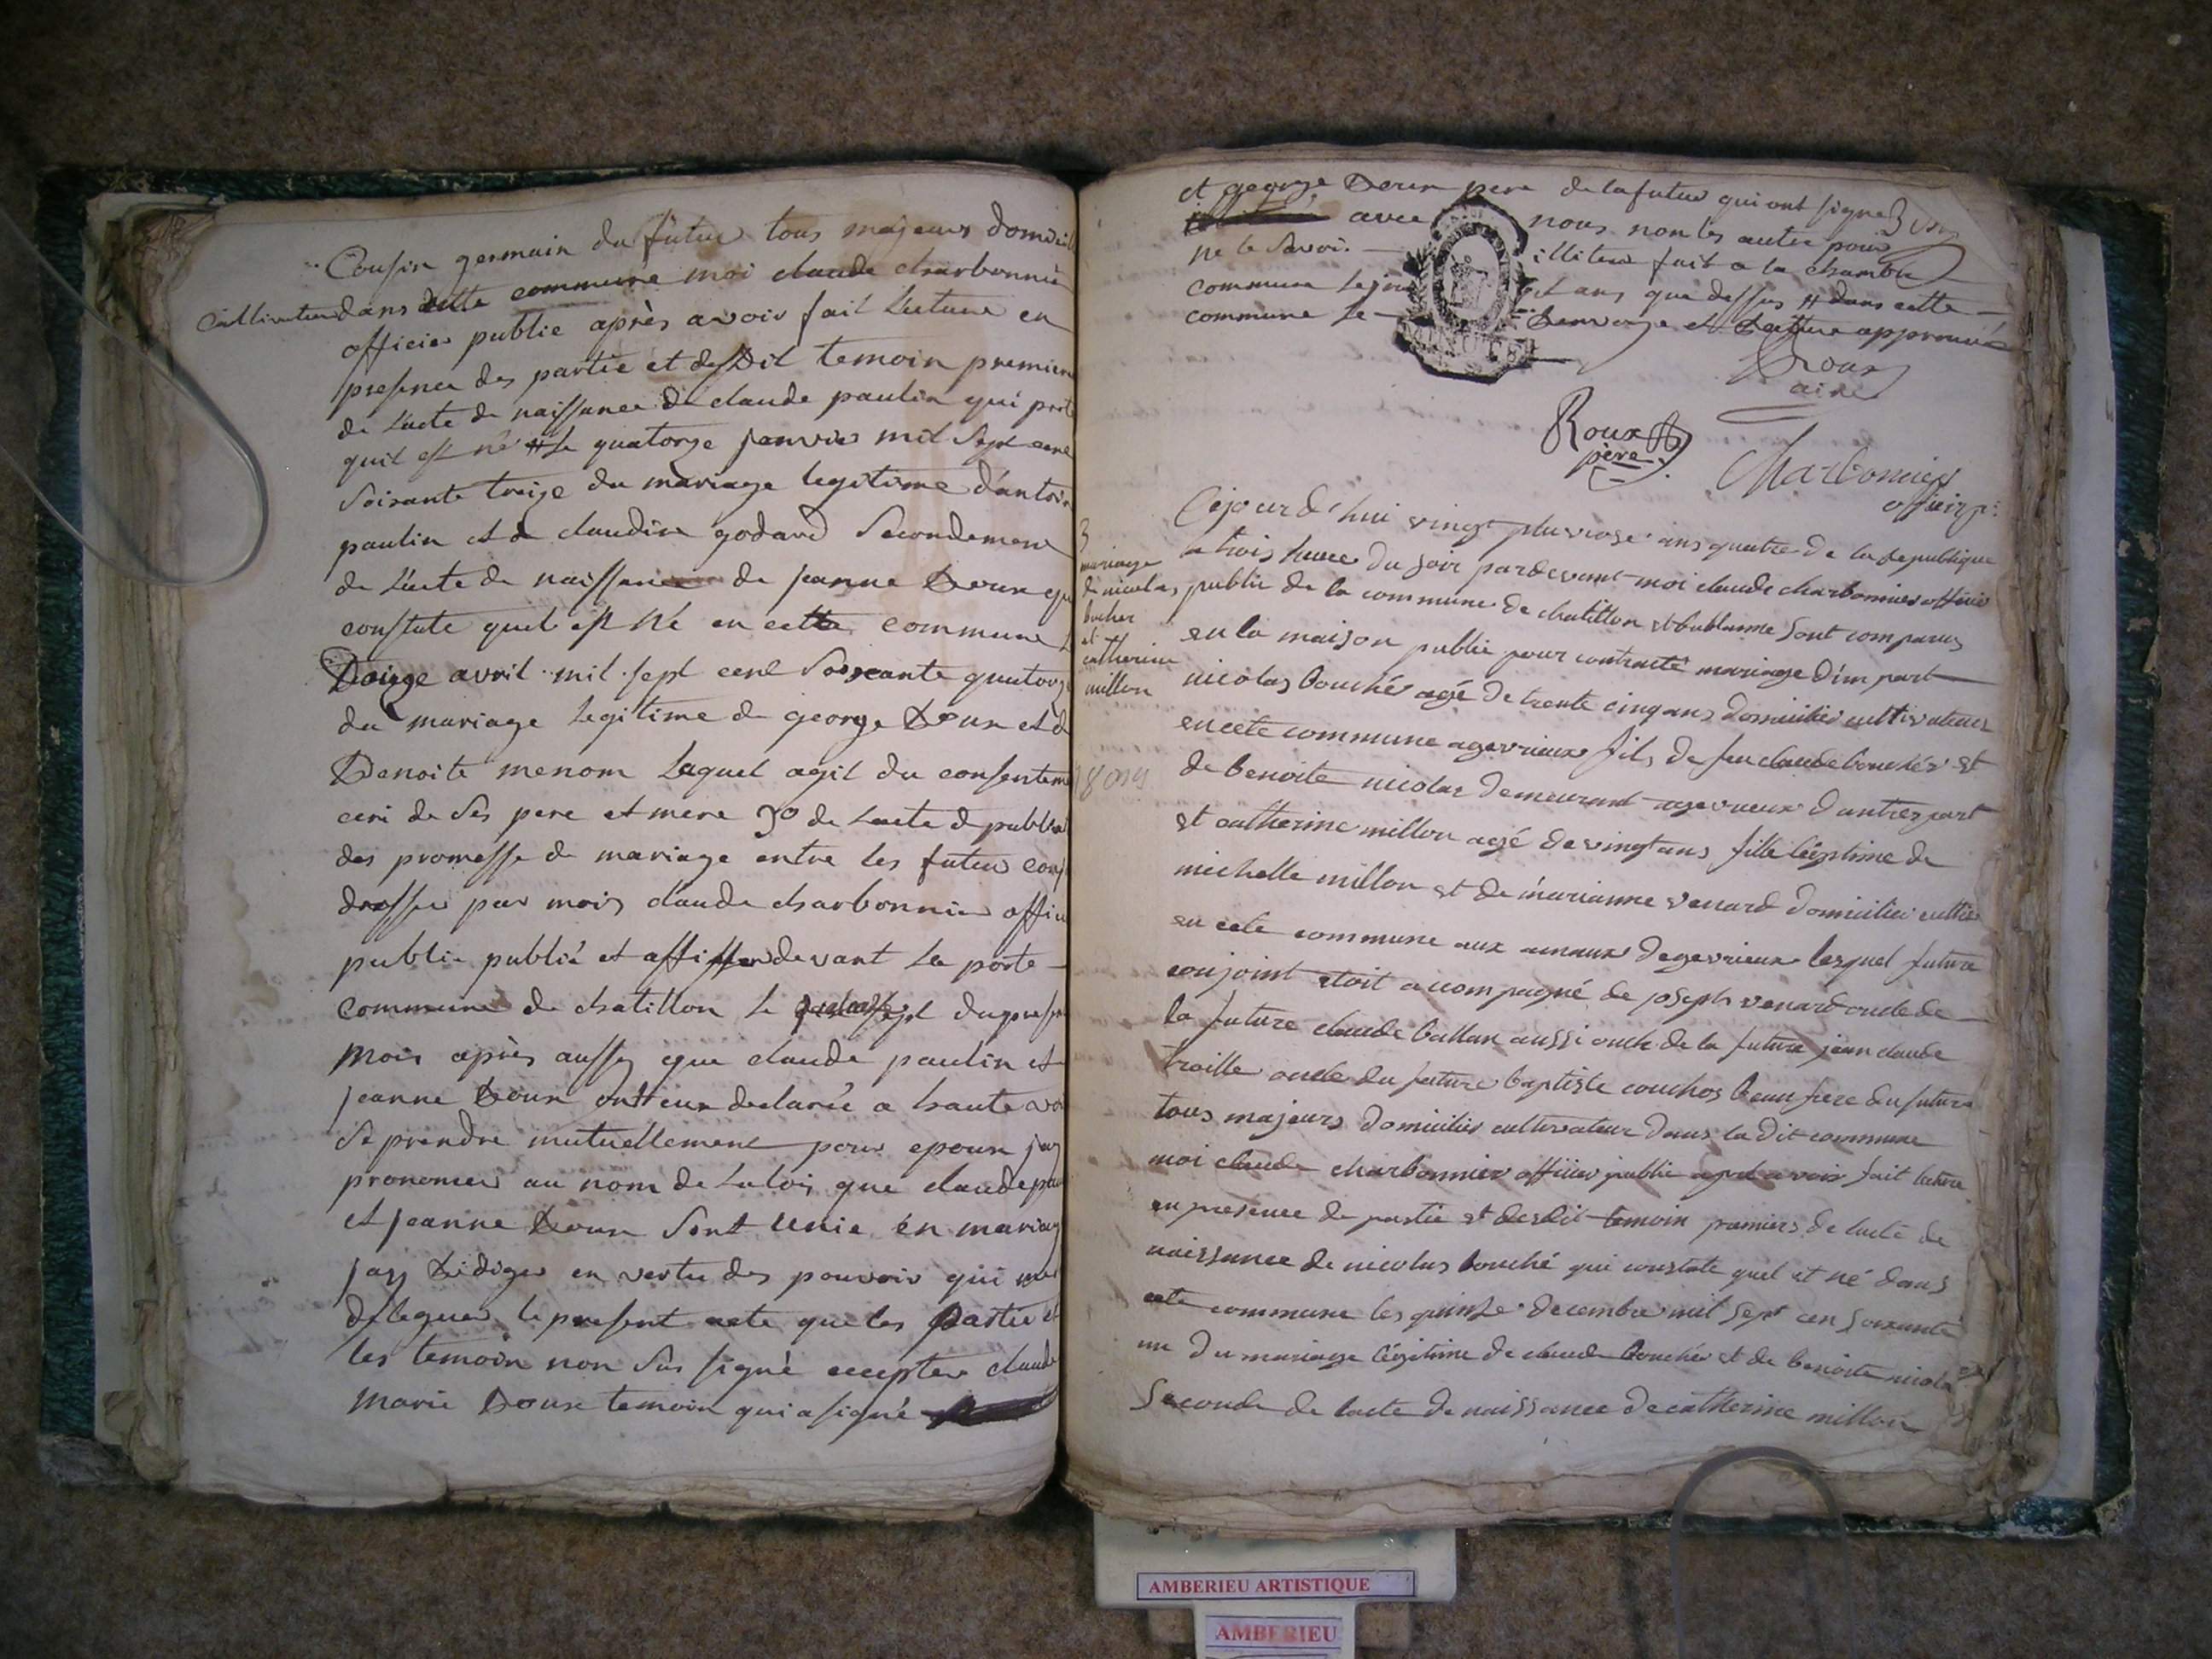 Cousin germain du futur tous majeurs domicil
Cultivateur dans cette commune moi claude charbonnier
officier public après avoir fait lecture en
presence des partie et desdit temoin premiere
de lacte de naissance de claude paulin qui porte
quil est né # le quatorze janvier mil sept cent
soisante treize du mariage legitime d'antoin
paulin et de claudine godard Secondement
de lacte de naissance de jeanne Roux qu
constate quel est né en cette commune l
Douze avril mil sept cent soixante quatorze
du mariage legitime de george Roux et d
Benoite menom laquel agit du consenteme
ceri de ses pere et mere 3º de lacte de publica
des promesse de mariage entre les futur conj
dressee par mois claude charbonnier offici
public publié et affisser devant la porte
commune de chatillon le sept du presen
mois après aussy que claude paulin et
jeanne Roux ont eux declarée a haute voi
se prendre mutuellement pour epoux jay
prononcer au nom de la loix que claude pau
et jeanne Roux sont unie en mariag
jay Rediger en vertu des pouvoir qui me
deleguer le present acte que les partie et
les temoin non sus signé eccepter claude
marie Roux temoin qui a signé
et george Roux pere de la futur qui ont signe
avec nous non les autre pour
ne le savoir illiteré fait a la chambre
commune le jour et ans que dessus # dans cette
commune le Renvoye et Rature approuvée
Roux
ainé
Roux
père
Charbonnier
officier p:
3
mariage
de nicolas
bucher
et
catherine
millon
Cejourd'hui vingt pluviose ans quatre de la republique
a trois heure du soir pardevant moi claude charbonnier officier
public de la commune de chatillon et bublanne sont comparus
en la maison public pour contracté mariage d'un part
nicolas bouché agé de trente cinq ans domicilié cultivateur
en cete commune a gevrieux fils de feu claude bouchér et
de benoite nicolas demeurant a gevrieux d'autres part
et catherine millon agé de vingt ans fille légitime de
michelle millon et de marianne venard domicilier cultiv
en cete commune aux amaux de gevrieux lesquel future
conjoint etoit acompagné de joseph venard oncle de
la future claude ballan aussi oncle de la future jean claude
traille oncle du future baptiste couchos beau frere du future
tous majeurs domicilies cultivateur dans la dit commune
moi claude charbonnier officier public apré avoir fait lecture
en presence de partie et desdit temoin premiers de lacte de
naissance de nicolas bouché qui constate quel et né dans
cete commune les quinse decembre mil sept cen soixante
un du mariage légitime de claude bouchér et de benoite nicola
Seconde de lacte de naissance de catherine millon
AMBERIEU ARTISTIQUE
AMBERIEU